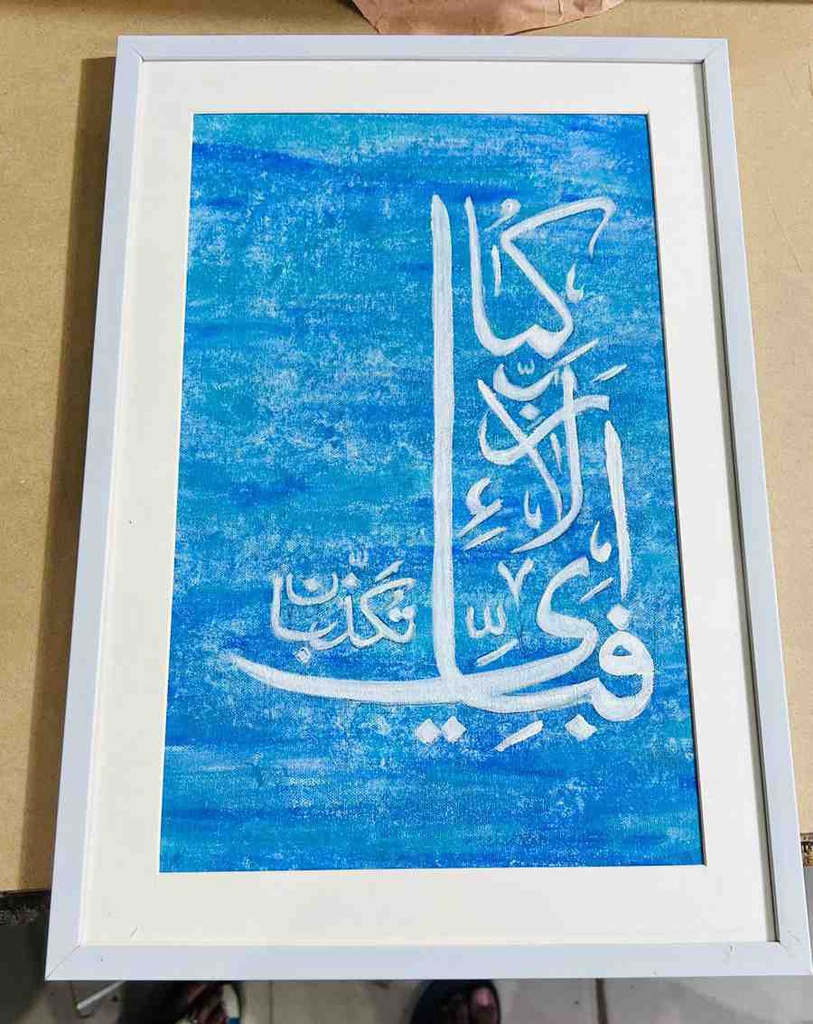 فَبِأَيِّ آلَاءِ رَبِّكُمَا
تُكَذِّبَانِ